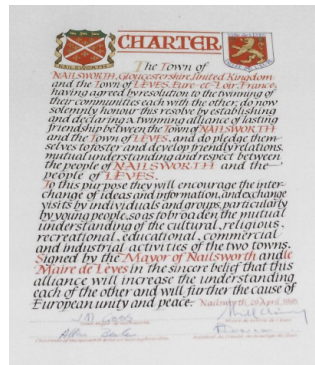 CHARTER
The Town of
NAILSWORTH, Gloucestershire, United Kingdom
and the Town of LÈVES, Eure-et-Loir, France,
having agreed by resolution to the twinning of
their communities each with the other; do now
solemnly honour this resolve by establishing
and declaring a twinning alliance of lasting
friendship between the Town of NAILSWORTH
and the Town of LÈVES, and do pledge them-
selves to foster and develop friendly relations,
mutual understanding and respect between
the people of NAILSWORTH and the
people of LÈVES.
To this purpose they will encourage the inter-
change of ideas and information, and exchange
visits by individuals and groups, particularly
by young people, so as to broaden the mutual
understanding of the cultural, religious,
recreational, educational, commercial
and industrial activities of the two towns.
Signed by the Mayor of Nailsworth and le
Maire de Lèves in the sincere belief that this
alliance will increase the understanding
each of the other and will further the cause of
European unity and peace. Nailsworth, 26 April 1985